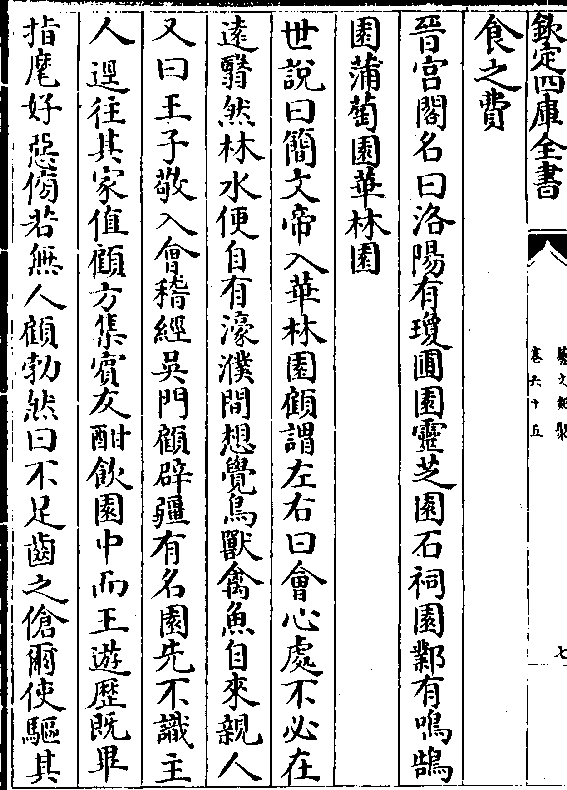 欽定四庫全書
藝文類聚
卷六十五
七
食之費
晉宫閣名曰洛陽有瓊圃園靈芝園石祠園鄴有鳴鵠
園蒲萄園華林園
世說曰簡文帝入華林園顧謂左右曰會心處不必在
遠翳然林水便自有濠濮間想覺鳥獸禽魚自來親人
又曰王子敬入會稽經吳門顧辟疆有名園先不識主
人逕往其家值顧方集賓友酣飲園中而王遊歷既畢
指麾好惡傍若無人顧勃然曰不足齒之傖爾使驅其